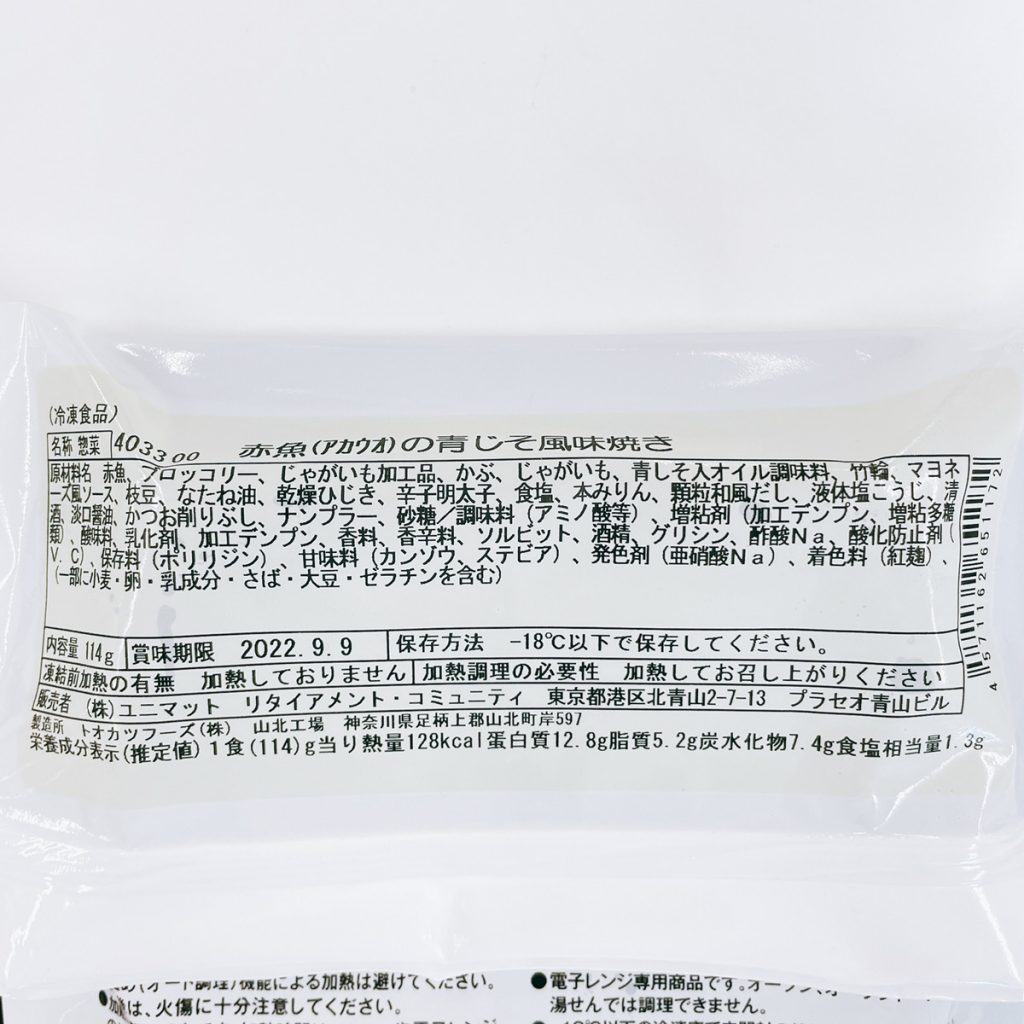 (冷凍食品)
名称 惣菜 403300 赤魚(アカウオ)の青じそ風味焼き
原材料名 赤魚、ブロッコリー、じゃがいも加工品、かぶ、じゃがいも、青しそ入オイル調味料、竹輪、マヨネ
ーズ風ソース、枝豆、なたね油、乾燥ひじき、辛子明太子、食塩、本みりん、顆粒和風だし、液体塩こうじ、清
酒、淡口醤油、かつお削りぶし、ナンプラー、砂糖／調味料(アミノ酸等)、増粘剤(加工デンプン、増粘多糖
類)、酸味料、乳化剤、加工デンプン、香料、香辛料、ソルビット、酒精、グリシン、酢酸Na、酸化防止剤(
V.C)、保存料(ポリリジン)、甘味料(カンゾウ、ステビア)、発色剤(亜硝酸Na)、着色料(紅麹)、
(一部に小麦・卵・乳成分・さば・大豆・ゼラチンを含む)
内容量 114g 賞味期限 2022.9.9 保存方法 -18℃以下で保存してください。
凍結前加熱の有無 加熱しておりません 加熱調理の必要性 加熱してお召し上がりください
販売者 (株)ユニマット リタイアメント・コミュニティ 東京都港区北青山2-7-13 プラセオ青山ビル
製造所 トオカツフーズ(株) 山北工場 神奈川県足柄上郡山北町岸597
栄養成分表示(推定値)1食(114)g当り熱量128kcal蛋白質12.8g脂質5.2g炭水化物7.4g食塩相当量1.3g
4571162651172
(オート調理)機能による加熱は避けてください。
は、火傷に十分注意してください。
●電子レンジ専用商品です。
湯せんでは調理できません。